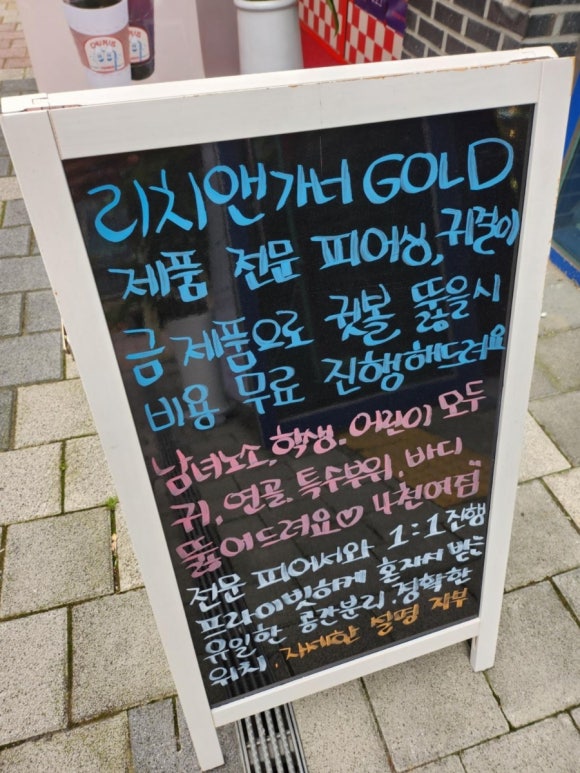 리치앤가너 GOLD
제품 전문 피어싱, 귀걸이
금 제품으로 귓볼 뚫을시
비용 무료 진행해드려요
남녀노소, 학생. 어린이 모두
귀, 연골. 특수부위. 바디
뚫어드려요♡ 4천여점"
전문 피어서와 1:1진행
프라이빗하게 혼자서 받는
유일한 공간분리. 정확한
위치. 자세한 설명 지부